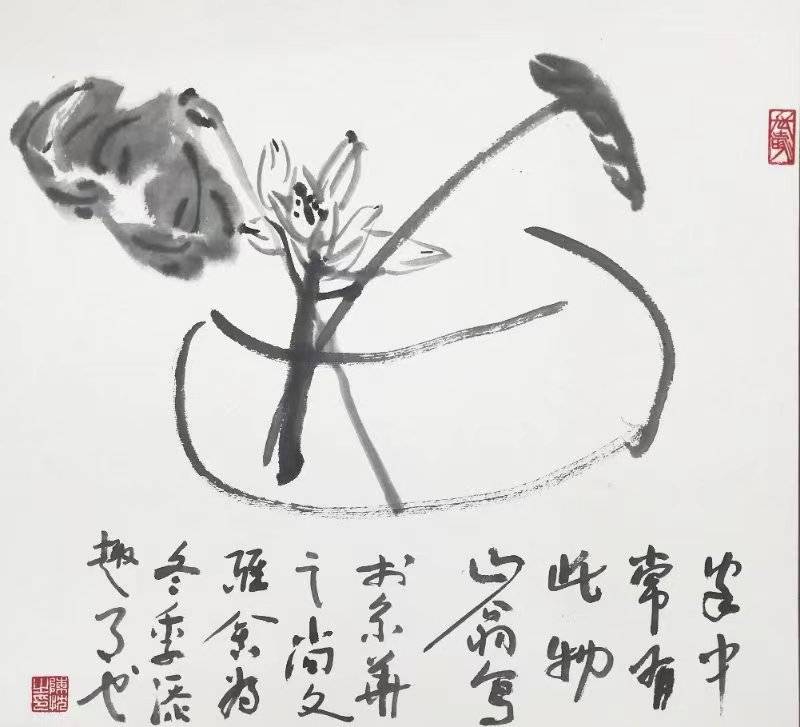 家中
常有
此物
山翁写
於京華
之尚文
雅舍为
冬季添
趣了也